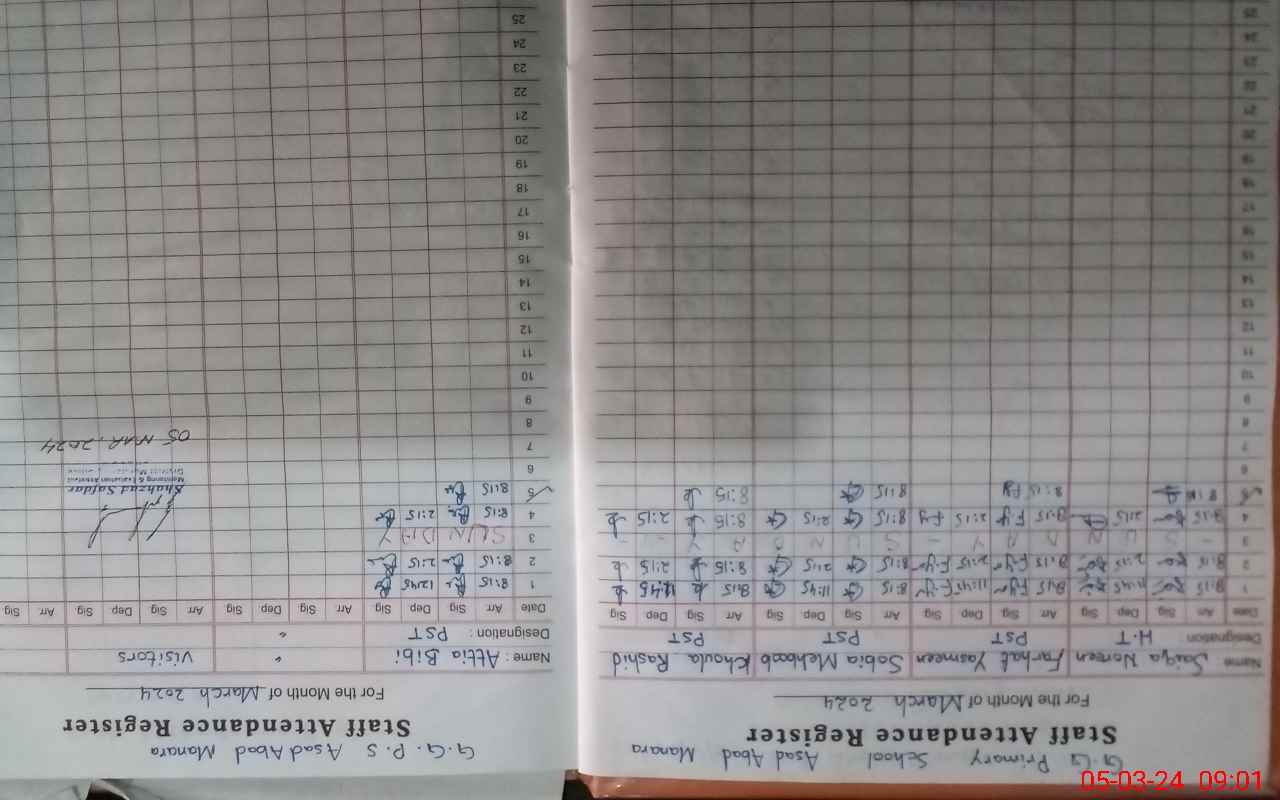 G.G Primary School Asad Abad Manara
Staff Attendance Register
For the Month of March 2024
Name Saiqa Noreen Farhat Yasmeen Sobia Mehboob Khoula Rashid
Designation H.T PST PST PST
Date Arr Sig Dep Sig Arr Sig Dep Sig Arr Sig Dep Sig Arr Sig Dep Sig
1 8:15 11:45 8:15 F.y 11:45 F.y 8:15 11:45 8:15 11:45
2 8:15 2:15 8:15 F.y 2:15 F.y 8:15 2:15 8:15 2:15
3 S U N D A Y
4 8:15 2:15 8:15 F.y 2:15 F.y 8:15 2:15 8:15 2:15
5 8:15 8:15 F.y 8:15 8:15
6
7
8
9
10
11
12
13
14
15
16
17
18
19
20
21
22
23
24
25
G.G.P.S Asad Abad Manara
Staff Attendance Register
For the Month of March 2024
Name : Attia Bibi " Visitors
Designation : PST "
Date Arr Sig Dep Sig Arr Sig Dep Sig Arr Sig Dep Sig Arr Sig
1 8:15 12:45
2 8:15 2:15
3 SUNDAY
4 8:15 2:15
5 8:15
Shahzad Safdar
Monitoring & Evaluation Assistant
District
6
7 05 MAR, 2024
8
9
10
11
12
13
14
15
16
17
18
19
20
21
22
23
24
25
05-03-24 09:01